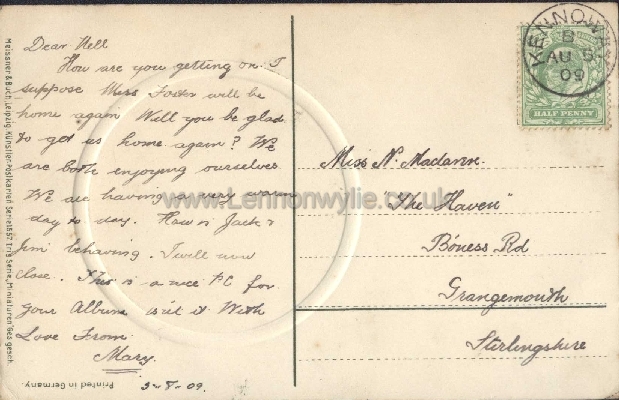 Dear Nell
How are you getting on. I
suppose Miss Foster will be
home again Will you be glad
to get us home again? We
are both enjoying ourselves
We are having a very warm
day to day. How is Jack &
Jim behaving. I will now
close. This is a nice PC for
your Album is it it With
Love From
Mary.
3-8-09.
Printed in Germany.
Meissner & Buch, Leipzig. Künstler-Postkarten Serie 1657. Iris Serie, Miniaturen. Ges. gesch.
KENNOWAY
B
AU 5
09
HALF PENNY
Miss N.
"The Haven"
Boness Rd
Grangemouth
Stirlingshire
www.Lennonwylie.co.uk